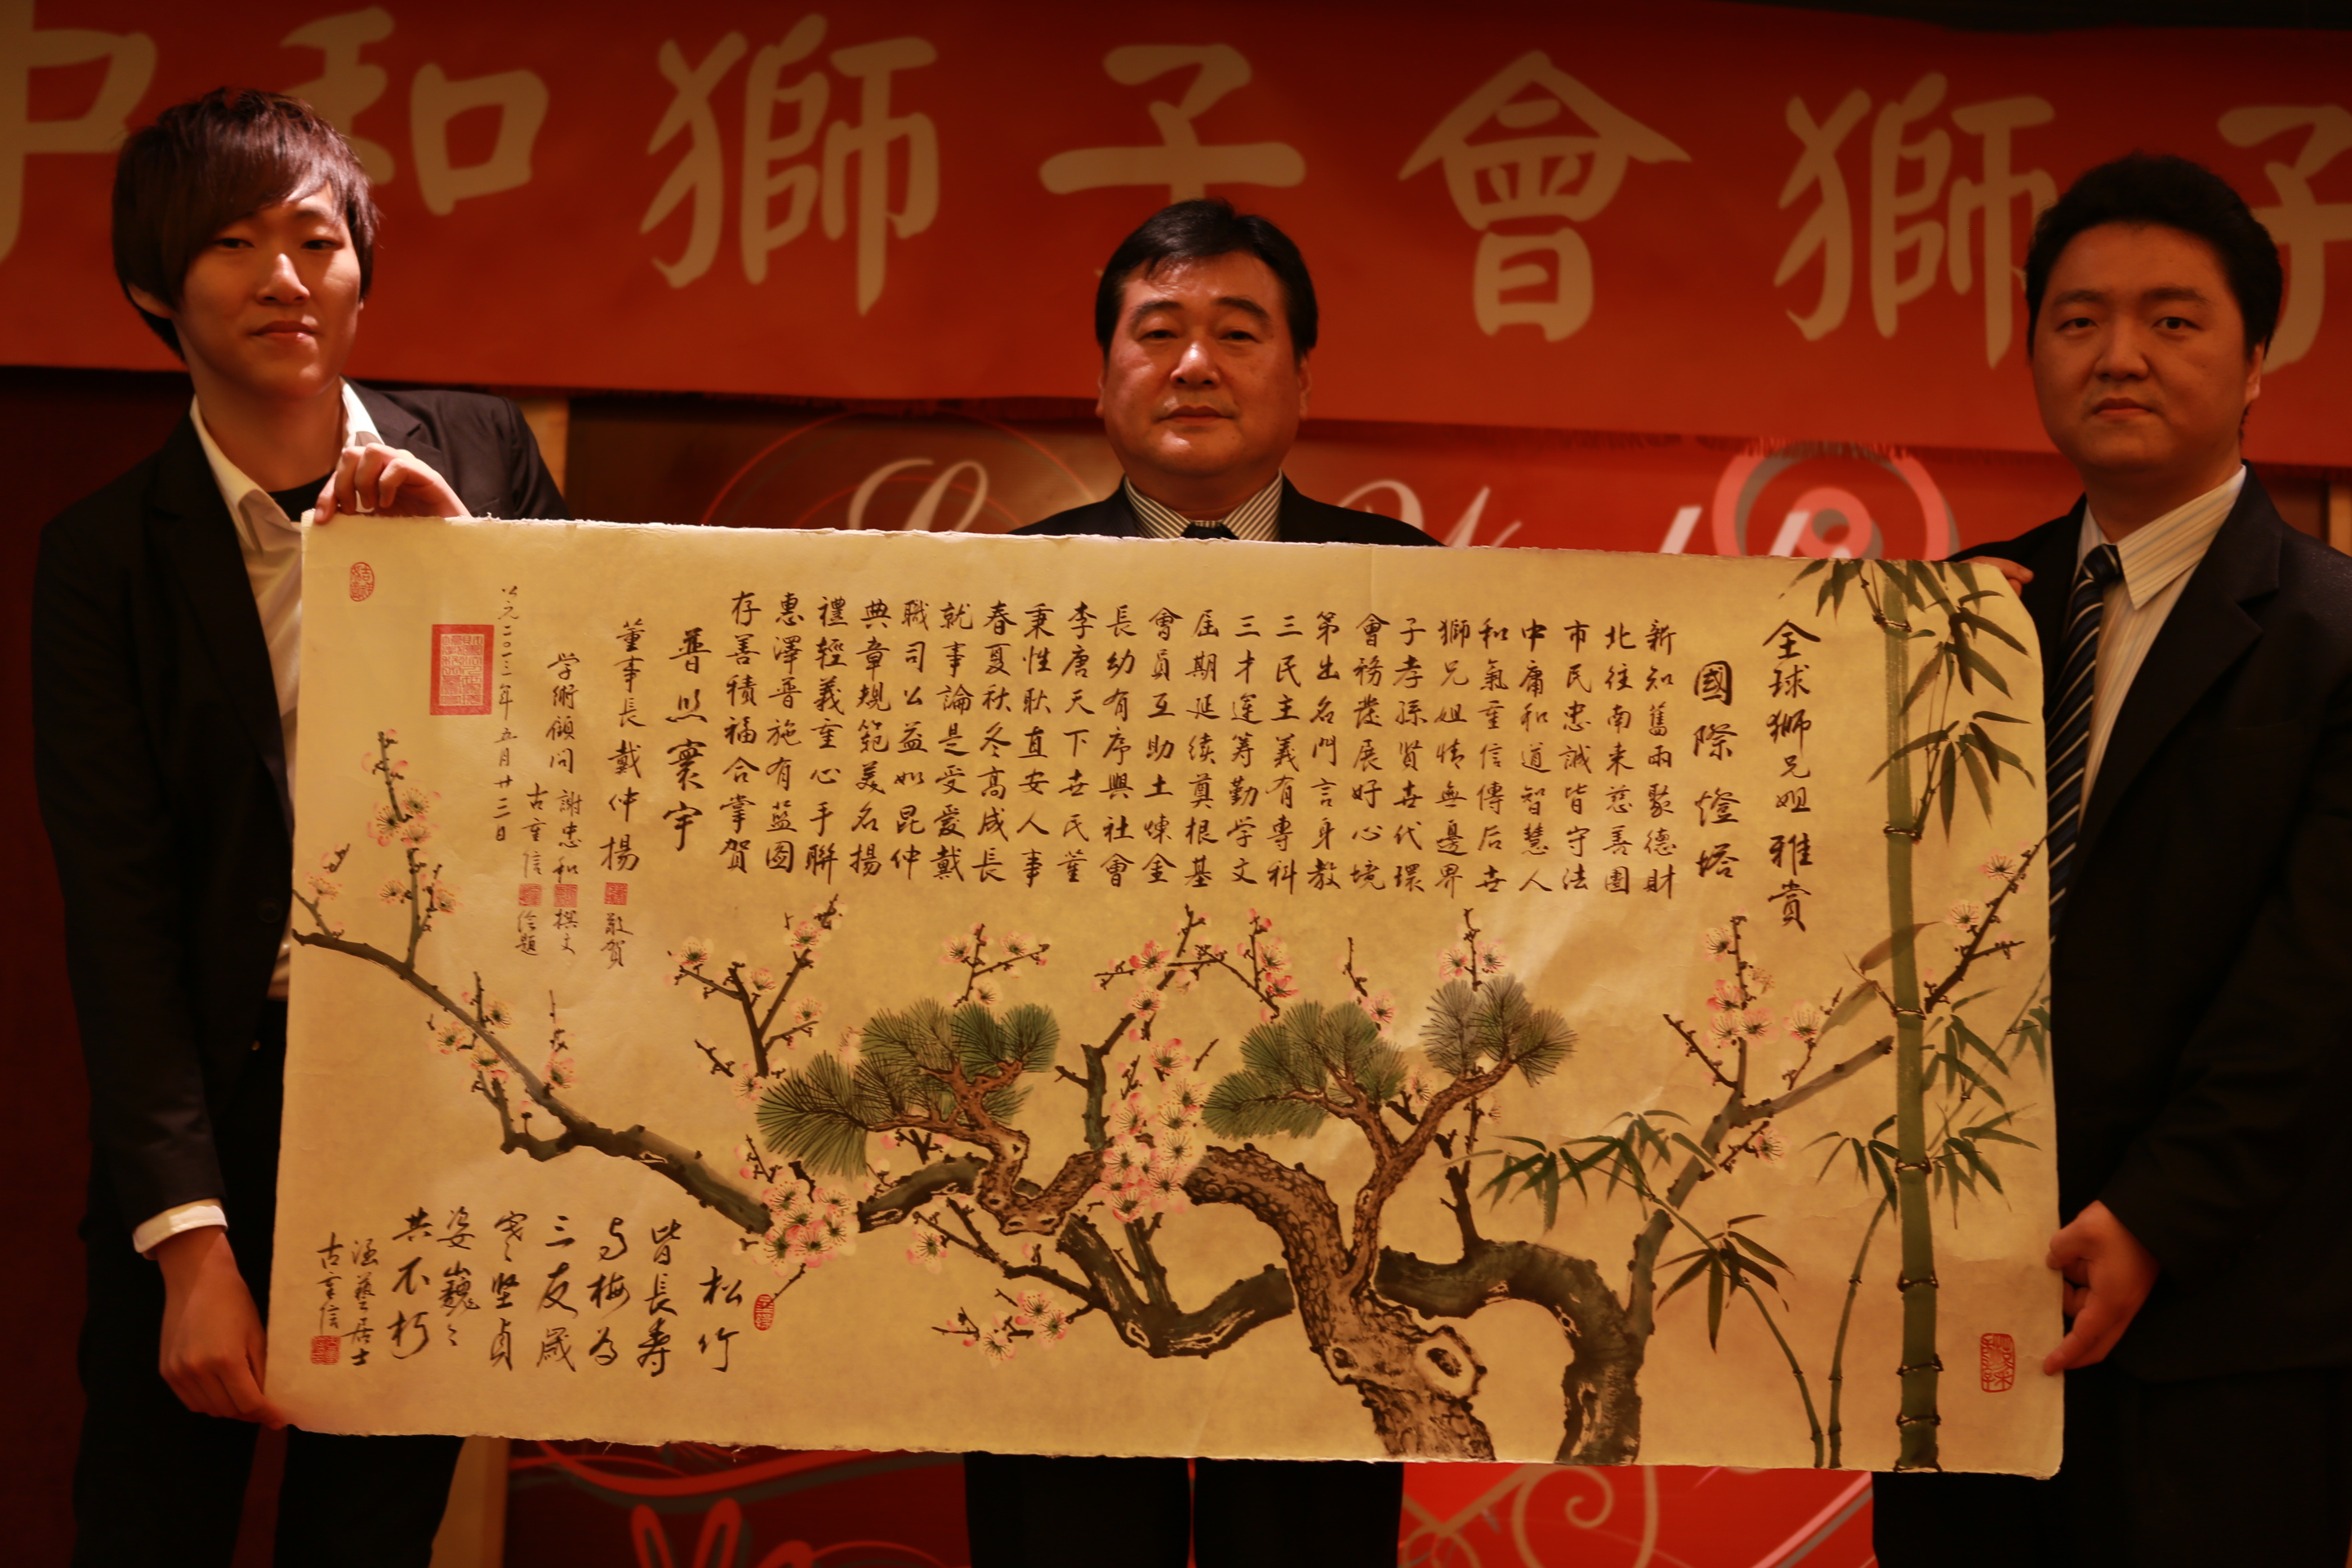 中和獅子會獅子
全球獅兄姐雅賞
國際燈塔
新知舊雨聚德財
北往南来慈善團
市民忠誠皆守法
中庸和道智慧人
和氣重信傳后世
獅兄姐情無邊界
子孝孫贤世代環
會務發展好心境
第出名門言身教
三民主義有專科
三才運筹勤学文
屆期延续奠根基
會員互助土煉金
長幼有序興社會
李唐天下世民董
秉性耿直安人事
春夏秋冬高成長
就事論是受爱戴
職司公益如昆仲
典章規範美名揚
禮輕義重心手聯
惠澤普施有藍图
存善積福合掌賀
普照寰宇
董事長戴仲揚 敬賀
学術顧問 謝忠和 撰文
古重信 绘題
公元二〇一三年五月廿二日
松竹
皆長壽
与梅为
三友歲
寒〻坚貞
姿巍〻
共不朽
涵藝居士
古重信